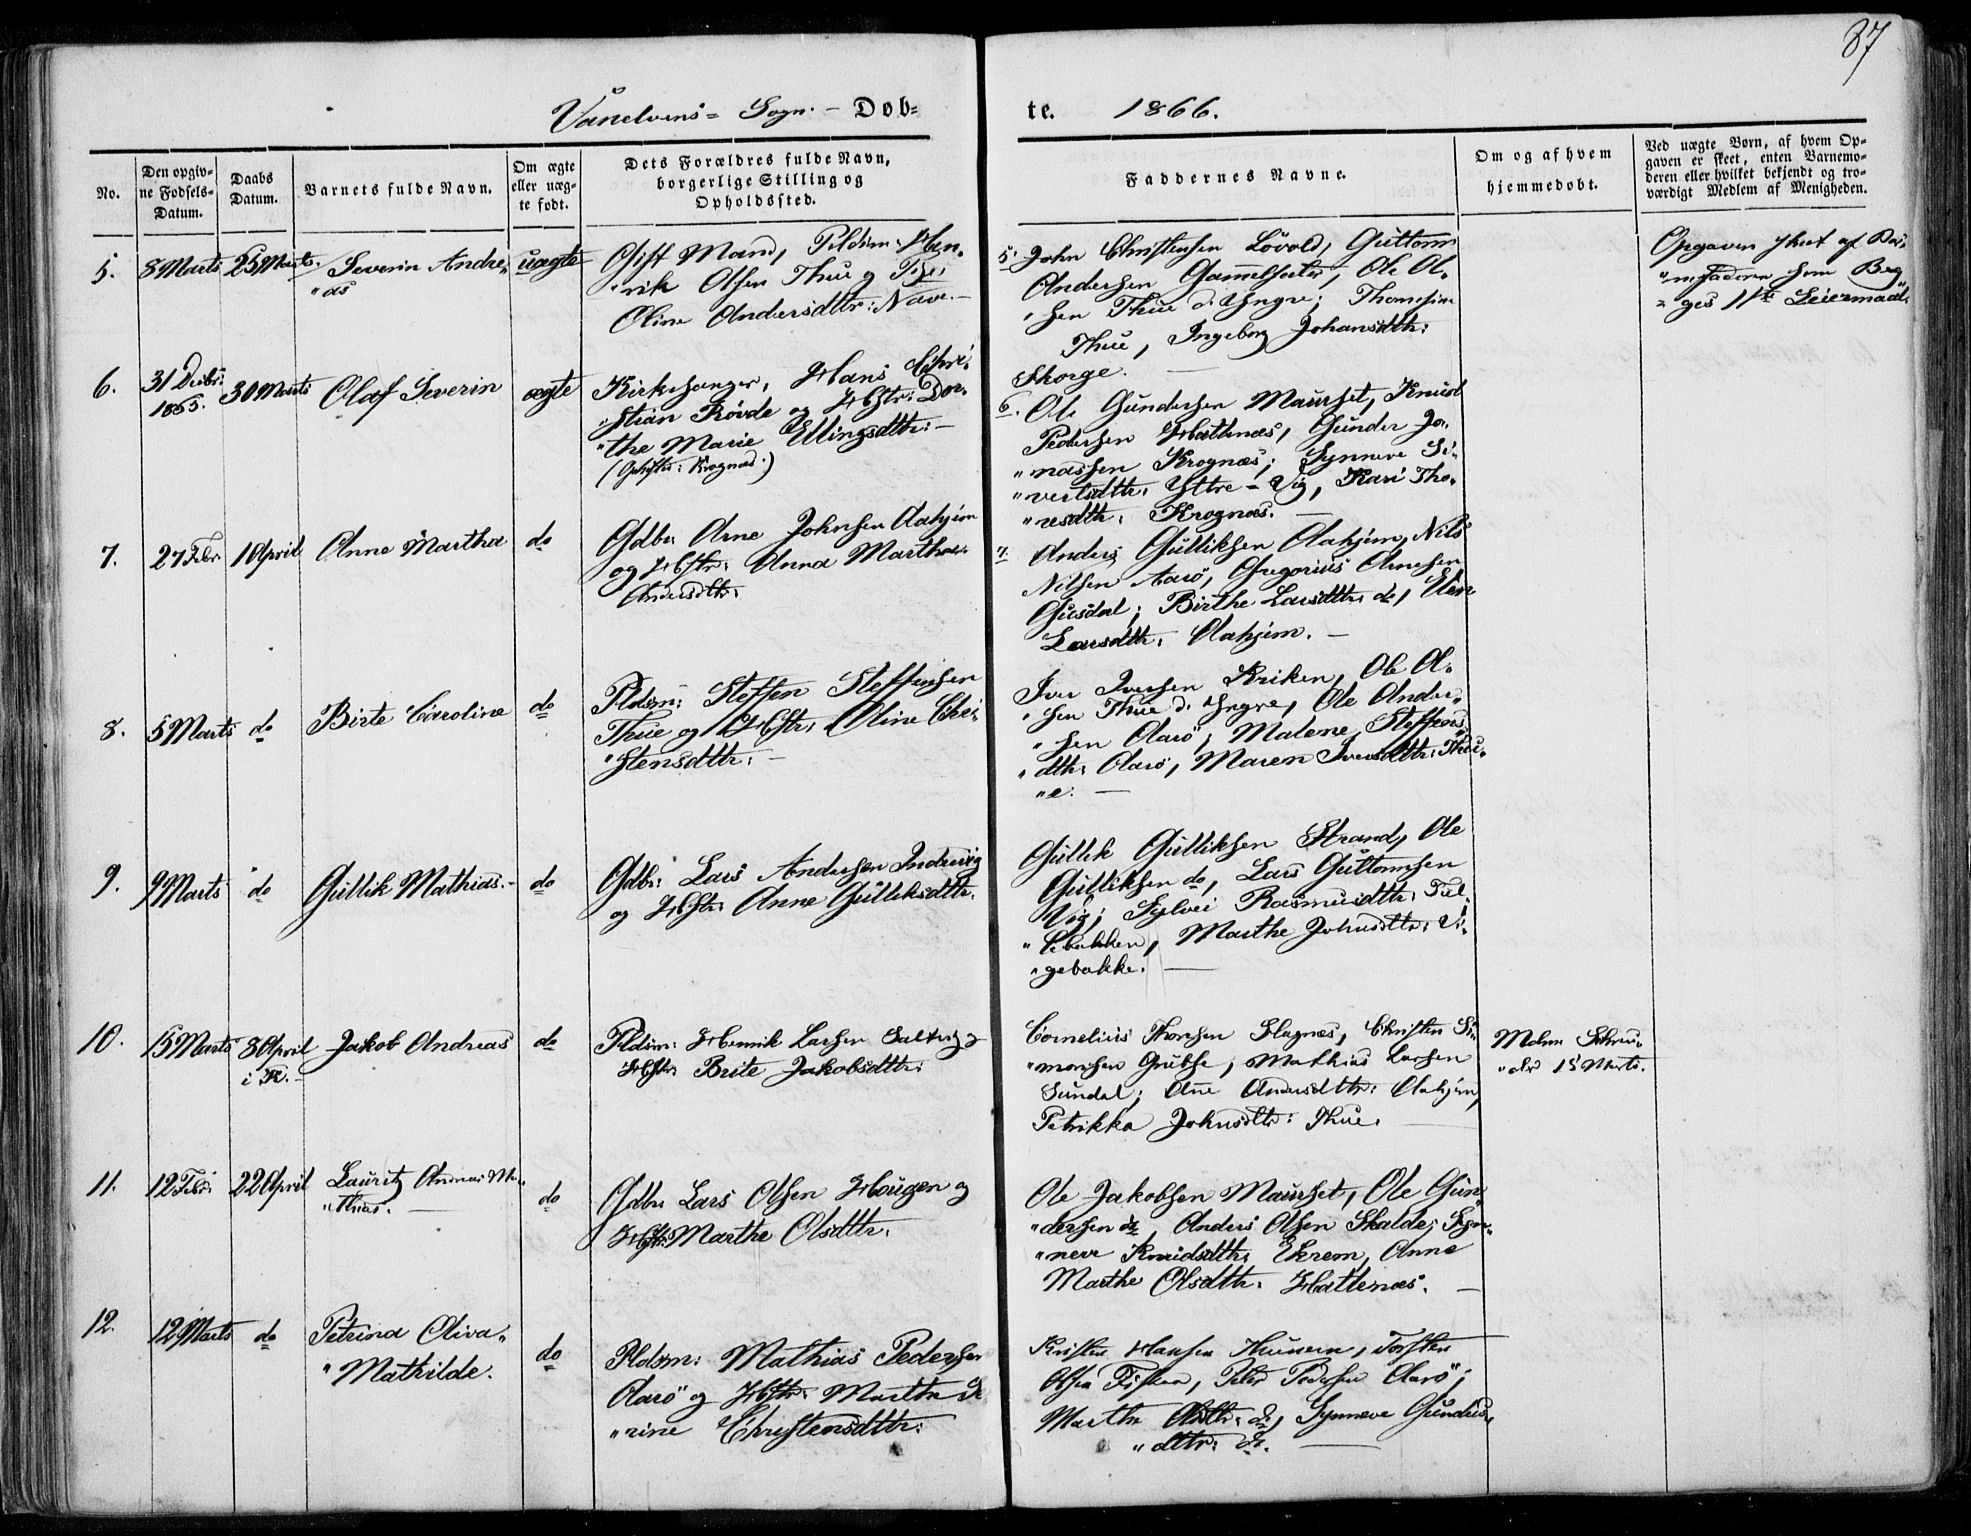 87
Vanelvens Sogn. – Døb=
te. 1866.
No.
Den opgiv-
ne Fødsels-
Datum.
Daabs
Datum.
Barnets fulde Navn.
Om ægte
eller uæg-
te født.
Dets Forældres fulde Navn,
borgerlige Stilling og
Opholdssted.
Faddernes Navne.
Om og af hvem
hjemmedøbt.
Ved uægte Børn, af hvem Op-
gaven er skeet, enten Barnemo-
deren eller hvilket bekjendt og tro-
værdigt Medlem af Menigheden.
5. 8 Marts 25 Marts Severin Andre,
"as
uægte
Gift Mand, Pldsm: Hen,
"rik Olsen Thue og Pige
Oline Andersdttr: Nave. –
5. John Christensen Løvold, Guttorm
Andersen Gammelsæter, Ole Ol,
"sen Thue d. Yngre; Thomasine
Thue, Ingeborg Johansdttr:
Skorge. –
Opgaven skeet af Bar,
"nefaderen hvem Beg,
"ges 1ste Leiermaal.
6. 31 Decbr:
1865.
30 Marts Olaf Severin ægte
Kirkesanger, Hans Chri,
"stian Røvde og Hstr: Dor,
"the Marie Ellingsdttr: –
(Opsitter: Krognæs.)
6. Ole Gundersen Maurset, Knud
Pedersen Hattenæs, Gunder Jo,
"nassen Krognæs; Synneve Si,
"vertsdttr: Yttre-Vig, Kari Tho,
"resdttr: Krognæs. –
7. 27 Febr 1 April Anne Martha do
Gdbr: Arne Johnsen Aahjem
og Hstr: Anna Martha
Andersdttr:
7. Anders Gulliksen Aahjem, Nils
Nilsen Aarø, Gregorius Arnesen
Gusdal; Birthe Larsdttr: do, Elen
Larsdttr: Aahjem. –
8. 5 Marts do Birte Caroline do
Pldsm: Steffen Steffensen
Thue og Hstr: Oline Chri,
"stensdttr: –
Iver Iversen Kriken, Ole Ol,
"sen Thue d. Yngre, Ole Ander,
"sen Aarø; Malene Steffens,
"dttr: Aarø, Maren Iversdttr: Thu,
"e. –
9. 9 Marts do Gullik Mathias. – do
Gdbr: Lars Andersen Indrevig
og Hstr: Anne Gulliksdttr.
Gullik Gulliksen Strand, Ole
Gulliksen do, Lars Guttormsen
Vig; Sylvei Rasmusdttr:
Marthe Johnsdttr: Vi,
"gebakke. –
10. 15 Marts 8 April
i K. –
Jakob Andreas do
Pldsm: Henrik Larsen Saltvig og
Hstr: Brite Jakobsdttr:
Cornelius Thorsen Slagnæs, Christen Si,
"monsen Grubse, Mathias Larsen
Sundal; Ane Andersdttr: Aahjem,
Petrikka Johnsdttr: Thue.
15 Marts.
11. 12 Febr: 22 April Lauritz Andreas Ma,
"thias. –
do
Gdbr: Lars Olsen Hougen og
Hstr: Marthe Olsdttr.
Ole Jakobsen Maurset, Ole Gun,
"dersen do, Anders Olsen Skalde; Syn,
"neve Knudsdttr: Ekrem, Anne
Marthe Olsdttr: Hattenæs. –
12. 12 Marts do Petrina Oliva,
"Mathilde.
do
Pldsm: Mathias Pedersen
Aarø og Hstr: Marthe Se
"rine Christensdttr:
Kristen Hansen Hunnem, Torsten
Olsen Fisken, Peter Pedersen Aarø;
Marthe Olsdttr: do, Synneve Gunders,
"dttr: do. –